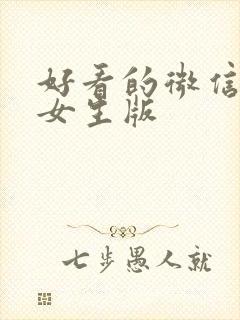 好看的微信
女生版
七步愚人就